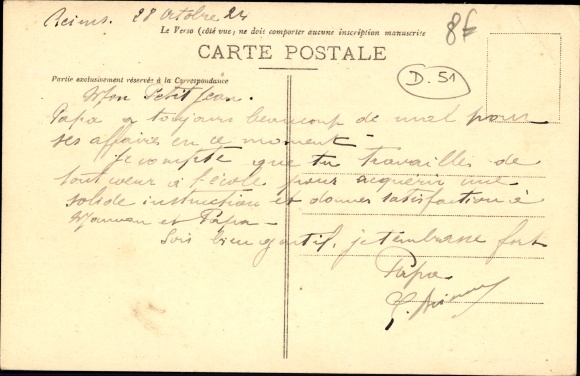 Reims. 28 Octobre 24
Le Verso (côté vue) ne doit comporter aucune inscription manuscrite
8F
CARTE POSTALE
D. 51
Partie exclusivement réservée à la Correspondance
Mon Petit Jean.
Papa a toujours beaucoup de mal pour
ses affaires en ce moment -
Je compte que tu travailles de
tout cœur à l'école pour acquérir une
solide instruction et donner satisfaction à
Maman et Papa -
Sois bien gentil, je t'embrasse fort
Papa